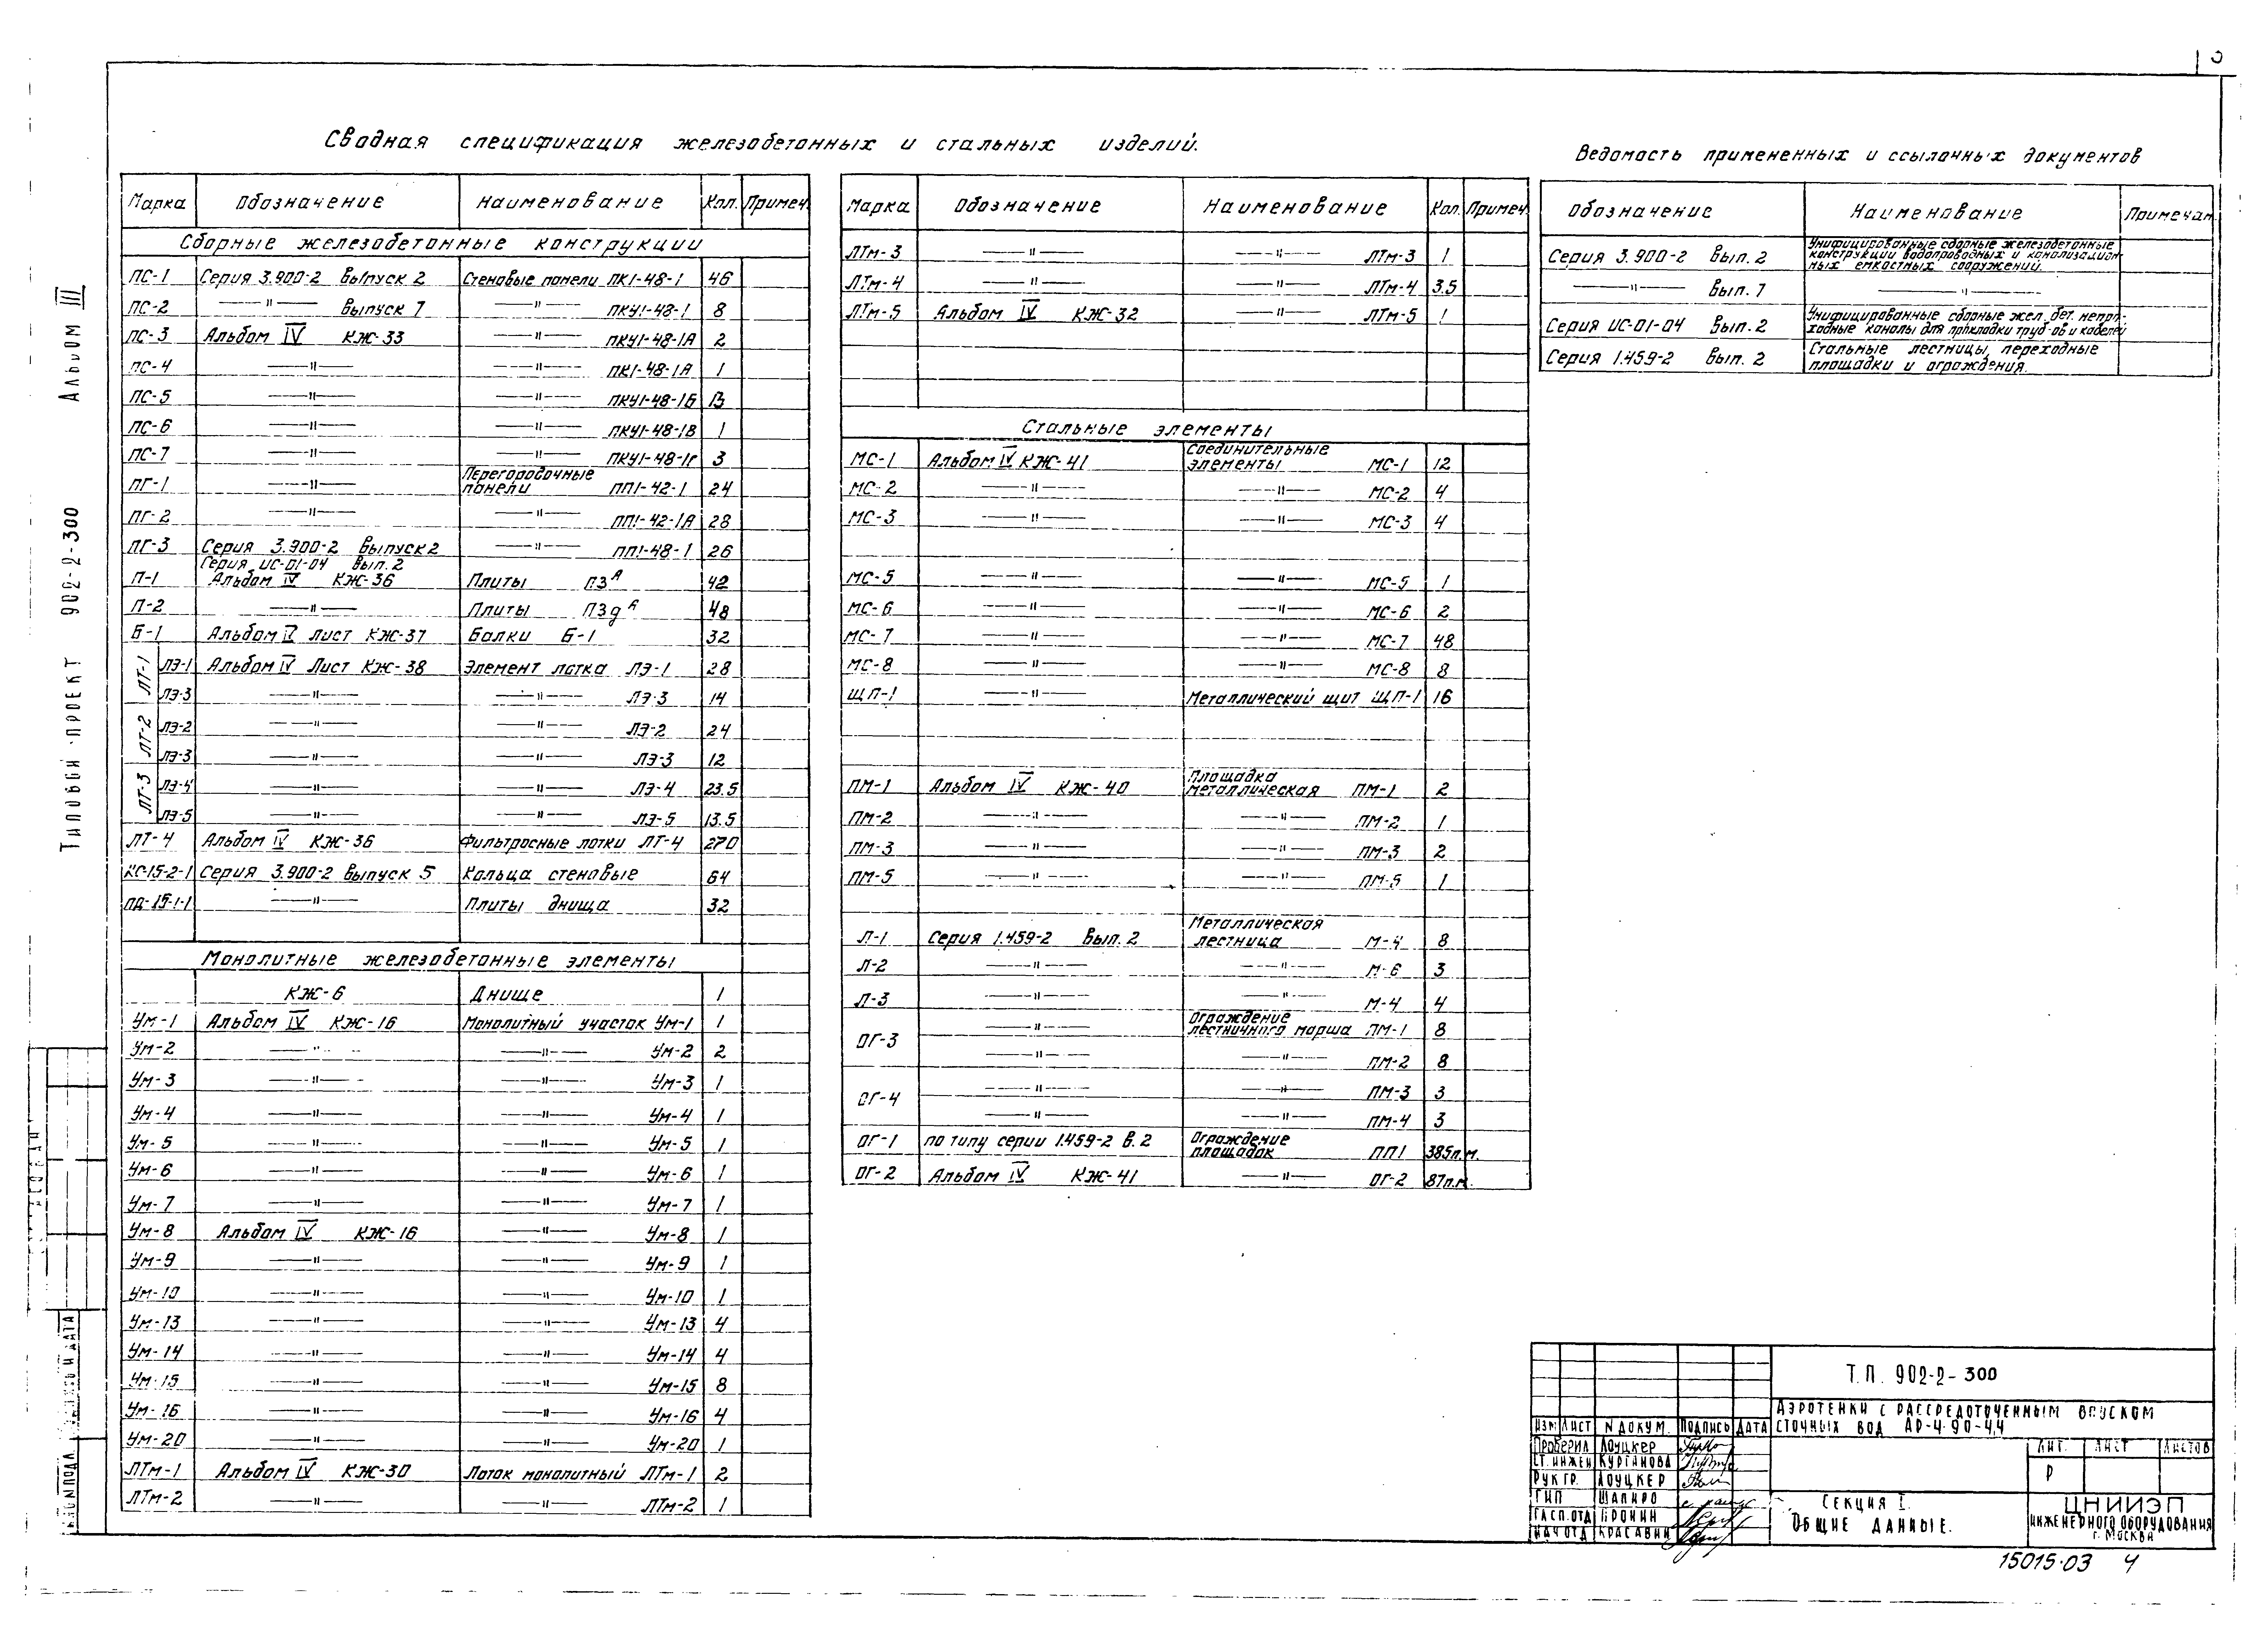 Сводная спецификация железобетонных и стальных изделий.
Марка Обозначение Наименование Кол. Примеч.
Сборные железобетонные конструкции
ПС-1 Серия 3.900-2 выпуск 2 Стеновые панели ПК1-48-1 46
ПС-2 —"— выпуск 7 —"— ПКУ1-48-1 8
ПС-3 Альбом IV КЖ-33 —"— ПКУ1-48-1А 2
ПС-4 —"— —"— ПК1-48-1А 1
ПС-5 —"— —"— ПКУ1-48-1Б
ПС-6 —"— —"— ПКУ1-48-1В 1
ПС-7 —"— —"— ПКУ1-48-1Г 3
ПГ-1 —"— Перегородочные панели ПП1-42-1 24
ПГ-2 —"— —"— ПП1-42-1А 28
ПГ-3 Серия 3.900-2 выпуск 2 —"— ПП1-48-1 26
П-1 Серия ИС-01-04 вып. 2 Альбом IV КЖ-36 Плиты П3А 42
П-2 —"— Плиты П3дА 48
Б-1 Альбом IV лист КЖ-37 Балки Б-1 32
ЛТ-1 ЛЭ-1 Альбом IV Лист КЖ-38 Элемент лотка ЛЭ-1 28
ЛЭ-3 —"— —"— ЛЭ-3 14
ЛТ-2 ЛЭ-2 —"— —"— ЛЭ-2 24
ЛЭ-3 —"— —"— ЛЭ-3 12
ЛТ-3 ЛЭ-4 —"— —"— ЛЭ-4 23.5
ЛЭ-5 —"— —"— ЛЭ-5 13.5
ЛТ-4 Альбом IV КЖ-36 Фильтросные лотки ЛТ-4 270
КС-15-2-1 Серия 3.900-2 выпуск 5 Кольца стеновые 64
ПД-15-1-1 —"— Плиты днища 32
Монолитные железобетонные элементы
КЖ-6 Днище 1
Ум-1 Альбом IV КЖ-16 Монолитный участок Ум-1 1
Ум-2 —"— —"— Ум-2 2
Ум-3 —"— —"— Ум-3 1
Ум-4 —"— —"— Ум-4 1
Ум-5 —"— —"— Ум-5 1
Ум-6 —"— —"— Ум-6 1
Ум-7 —"— —"— Ум-7 1
Ум-8 Альбом IV КЖ-16 —"— Ум-8 1
Ум-9 —"— —"— Ум-9 1
Ум-10 —"— —"— Ум-10 1
Ум-13 —"— —"— Ум-13 4
Ум-14 —"— —"— Ум-14 4
Ум-15 —"— —"— Ум-15 8
Ум-16 —"— —"— Ум-16 4
Ум-20 —"— —"— Ум-20 1
ЛТм-1 Альбом IV КЖ-30 Лоток монолитный ЛТм-1 2
ЛТм-2 —"— —"— ЛТм-2 1
Марка Обозначение Наименование Кол. Примеч.
ЛТм-3 —"— —"— ЛТм-3 1
ЛТм-4 —"— —"— ЛТм-4 3.5
ЛТм-5 Альбом IV КЖ-32 —"— ЛТм-5 1
Стальные элементы
МС-1 Альбом IV КЖ-41 Соединительные элементы МС-1 12
МС-2 —"— —"— МС-2 4
МС-3 —"— —"— МС-3 4
МС-5 —"— —"— МС-5 1
МС-6 —"— —"— МС-6 2
МС-7 —"— —"— МС-7 48
МС-8 —"— —"— МС-8 8
ЩП-1 —"— Металлический щит ЩП-1 16
ПМ-1 Альбом IV КЖ-40 Площадка металлическая ПМ-1 2
ПМ-2 —"— —"— ПМ-2 1
ПМ-3 —"— —"— ПМ-3 2
ПМ-5 —"— —"— ПМ-5 1
Л-1 Серия 1.459-2 Вып. 2 Металлическая лестница М-4 8
Л-2 —"— —"— М-6 3
Л-3 —"— —"— М-4 4
ОГ-3 —"— Ограждение лестничного марша ПМ-1 8
—"— —"— ПМ-2 8
ОГ-4 —"— —"— ПМ-3 3
—"— —"— ПМ-4 3
ОГ-1 по типу серии 1.459-2 в. 2 Ограждение площадок ПП1 385п.м.
ОГ-2 Альбом IV КЖ-41 —"— ОГ-2 87п.м.
Ведомость примененных и ссылочных документов
Обозначение Наименование Примечан.
Серия 3.900-2 Вып. 2 Унифицированные сборные железобетонные
конструкции водопроводных и канализацион
ных емкостных сооружений.
—"— Вып. 7 —"—
Серия ИС-01-04 Вып. 2 Унифицированные сборные жел. бет. непро-
ходные каналы для прокладки труб-ов и кабелей
Серия 1.459-2 Вып. 2 Стальные лестницы, переходные
площадки и ограждения.
Типовой проект 902-2-300 Альбом III
Т.П. 902-2-300
Аэротенки с рассредоточенным впуском
сточных вод АР-4-90-4,4
Изм Лист N докум. Подпись Дата
Проверил Лоуцкер
Ст. инжен Курганова
Рук гр. Лоуцкер
ГИП Шапиро
Гл.сп.отд Пронин
Нач отд Красавин
Лит. Лист Листов
Р
Секция I.
Общие данные.
ЦНИИЭП
инженерного оборудования
г. Москва
15015-03 4